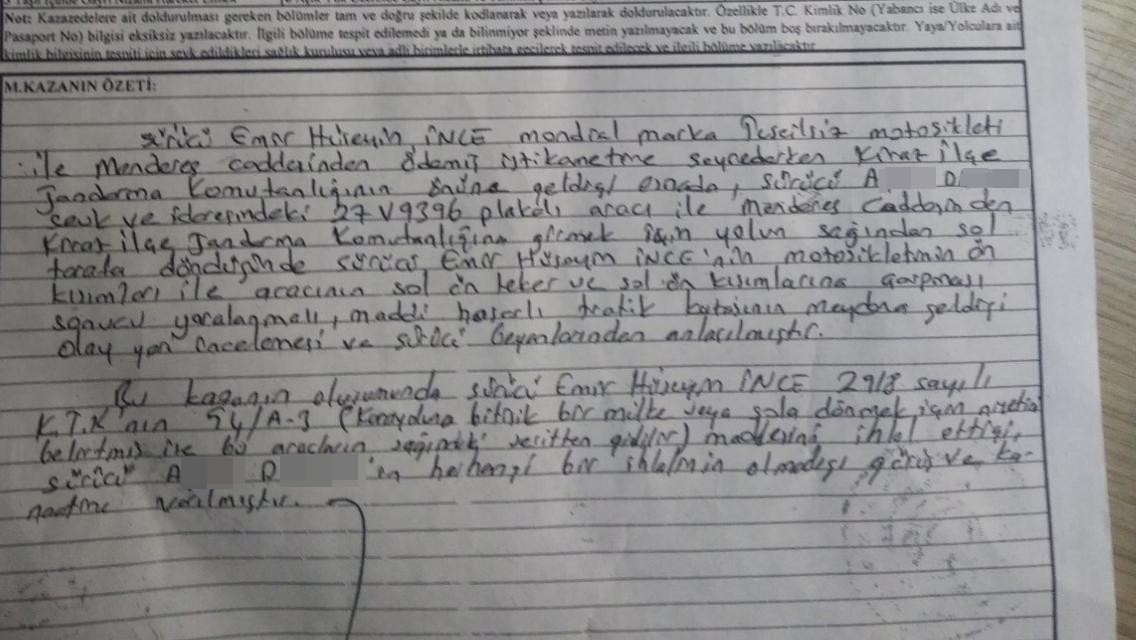 Not: Kazazedelere ait doldurulması gereken bölümler tam ve doğru şekilde kodlanarak veya yazılarak doldurulacaktır. Özellikle T.C. Kimlik No (Yabancı ise Ülke Adı ve
Pasaport No) bilgisi eksiksiz yazılacaktır. İlgili bölüme tespit edilemedi ya da bilinmiyor şeklinde metin yazılmayacak ve bu bölüm boş bırakılmayacaktır. Yaya/Yolculara ait
kimlik bilgisinin tespiti için sevk edildikleri sağlık kuruluşu veya adli birimlerle irtibata geçilerek tespit edilecek ve ilgili bölüme yazılacaktır
M.KAZANIN ÖZETİ:
sürücü Emir Hüseyin İNCE mondial marka tescilsiz motosikleti
ile Menderes caddesinden Ödemiş istikametine seyrederken Kiraz ilçe
Jandarma Komutanlığının önüne geldiği esnada, sürücü A D
sevk ve idaresindeki 27 V 9396 plakalı aracı ile Menderes Caddesinden
Kiraz ilçe Jandarma Komutanlığına girmek için yolun sağından sol
tarafa döndüğünde sürücü Emir Hüseyin İNCE'nin motosikletinin ön
kısımları ile aracının sol ön teker ve sol ön kısımlarına çarpması
sonucu yaralanmalı, maddi hasarlı trafik kazasının meydana geldiği
olay yeri incelemesi ve sürücü beyanlarından anlaşılmıştır.
Bu kazanın oluşumunda sürücü Emir Hüseyin İNCE 2918 sayılı
K.T.K'nın 54/A-3 bitişik bir mülke veya sola dönmek için
belirtmiş ise bu araçların sağındaki şeritten gidilir) maddesini ihlal ettiği,
sürücü A D 'ın herhangi bir ihlalinin olmadığı görüş ve ka-
naatine varılmıştır.